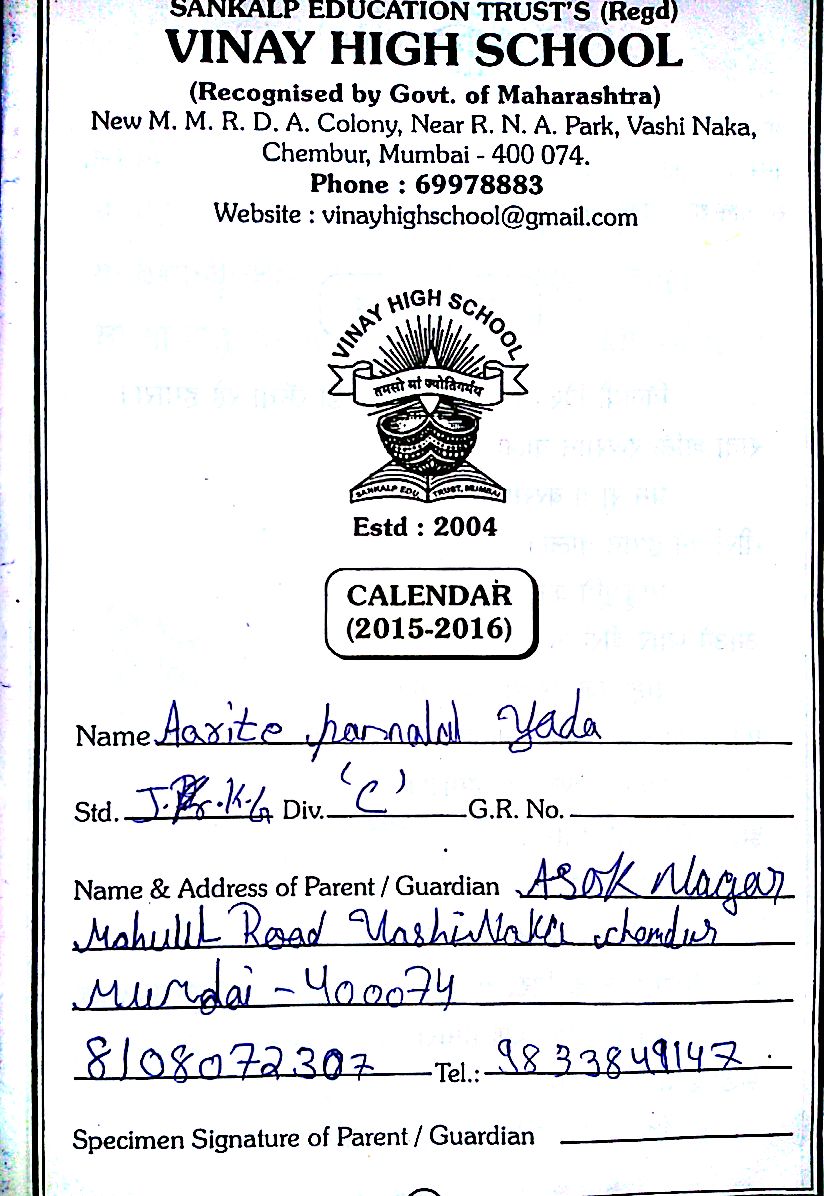 SANKALP EDUCATION TRUST'S (Regd)
VINAY HIGH SCHOOL
(Recognised by Govt. of Maharashtra)
New M. M. R. D. A. Colony, Near R. N. A. Park, Vashi Naka,
Chembur, Mumbai - 400 074.
Phone : 69978883
Website : vinayhighschool@gmail.com
VINAY HIGH SCHOOL
तमसो मां ज्योतिर्गमय
SANKALP EDU. TRUST, MUMBAI
Estd : 2004
CALENDAR
(2015-2016)
Name Aarite parnalal Yada
Std. J.K.G Div. 'C' G.R. No.
Name & Address of Parent / Guardian ASOK Nagar
Road VashiNaka
- 400074
8108072307 Tel.: 9833849147
Specimen Signature of Parent / Guardian